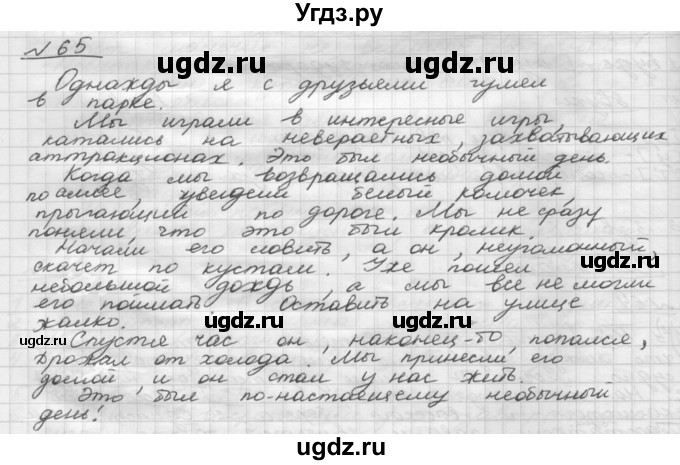 Угдз.ру
№ 65
Однажды я с друзьями гулял
в парке.
Мы играли в интересные игры,
катались на невераетных, захватывающих
аттракционах. Это был необычный день.
Когда мы возвращались домой
по аллее, увидели белый комочек
прыгающий по дороге. Мы не сразу
поняли, что это был кролик.
Начали его ловить, а он, неугомонный,
скачет по кустам. Уже пошел
небольшой дождь, а мы все не могли
его поймать. Оставить на улице
жалко.
Спустя час он, наконец-то, попался,
дрожал от холода. Мы принесли его
домой, и он стал у нас жить.
Это был по-настоящему необычный
день!
ugdz.ru
ugdz.ru
ugdz.ru
ugdz.ru
ugdz.ru
ugdz.ru
ugdz.ru
ugdz.ru
ugdz.ru
ugdz.ru
ugdz.ru
ugdz.ru
ugdz.ru